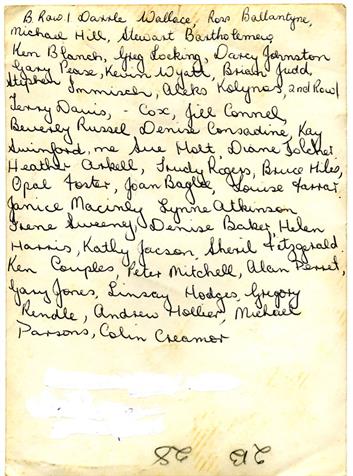 B Row 1 Darrle Wallace, Ross Ballantyne,
Michael Hill, Stewart Bartholemeg
Ken Blanch, Greg Locking, Darcy Johnston
Gary Pease, Kevin Wyatt, Brian Judd,
Stephen Immisch, Aleks Kolynos, 2nd Row
Terry Davis, - Cox, Jill Connel,
Beverly Russel, Denise Consadine, Kay
Swinford, me Sue Holt, Diane Tolcher
Heather Arkell, Trudy Rogers, Bruce Hiles,
Opal Foster, Joan Bagle, Louise Farrar
Janice Macinley Lynne Atkinson
Irene Sweeney, Denise Baker, Helen
Harris, Kathy Jacson, Sheril Fitzgerald
Ken Couples, Peter Mitchell, Alan Perret,
Gary Jones, Linsay Hodges, Gregory
Rendle, Andrew Hollier, Michael
Parsons, Colin Creamor
2B 2S